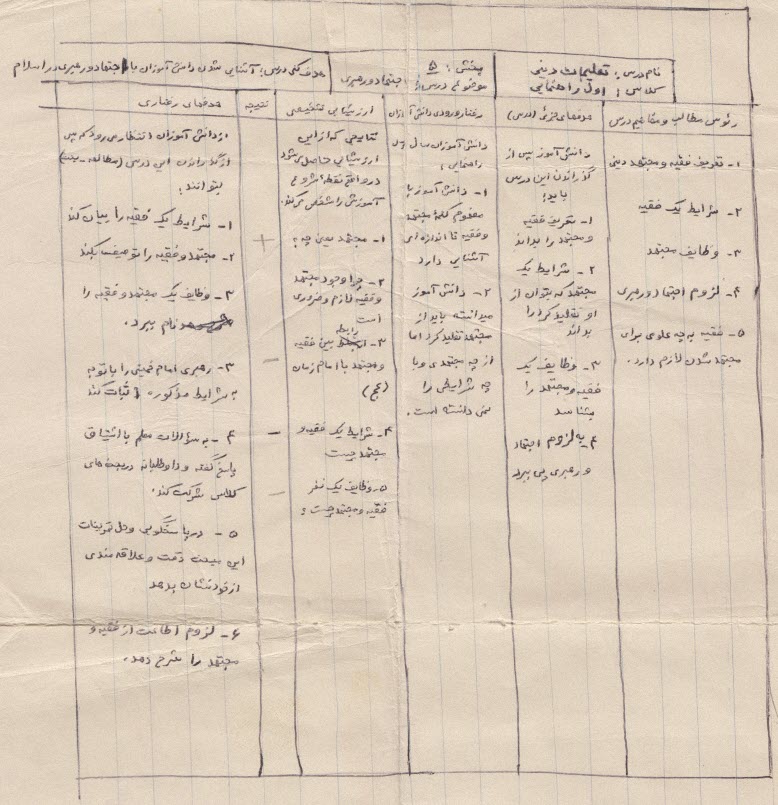 نام درس: تعلیمات دینی
کلاس: اول راهنمایی
بخش: ۵
موضوع درس: اجتهاد و رهبری
هدف کلی درس: آشنایی شدن دانش آموزان با اجتهاد و رهبری در اسلام
رئوس مطالب و مفاهیم درس
۱- تعریف فقیه و مجتهد دینی
۲- شرایط یک فقیه
۳- وظایف مجتهد
۴- لزوم اجتهاد و رهبری
۵- فقیه به چه علومی برای
مجتهد شدن لازم دارد.
هدفهای جزئی (درس)
دانش آموز پس از
گذراندن این درس
باید:
۱- تعریف فقیه
و مجتهد را بداند
۲- شرایط یک
مجتهد که بتوان از
او تقلید کرد را
بداند
۳- وظایف یک
فقیه و مجتهد را
بشناسد
۴- به لزوم اجتهاد
و رهبری پی ببرد
رفتار ورودی دانش آموزان
دانش آموزان سال اول
راهنمایی:
۱- دانش آموز با
مفهوم کلمه مجتهد
و فقیه تا اندازه ای
آشنایی دارد
۲- دانش آموز
میدانسته باید از
مجتهد تقلید کرد اما
از چه مجتهدی و با
چه شرایطی را
نمی دانسته است.
ارزشیابی تشخیصی
نتایجی که از این
ارزشیابی حاصل می شود
در واقع نقطه شروع
آموزش را مشخص می کند.
۱- مجتهد یعنی چه؟
۲- چرا وجود مجتهد
و فقیه لازم و ضروری
است
۳- رابطه بین فقیه
و مجتهد با امام زمان
(عج)
۴- شرایط یک فقیه و
مجتهد چیست
۵- وظایف یک نفر
فقیه و مجتهد چیست؟
نتیجه
+
-
-
-
هدفهای رفتاری
از دانش آموزان انتظار می رود که پس
از گذراندن این درس (مطالعه - بحث)
بتوانند:
۱- شرایط یک فقیه را بیان کند
۲- مجتهد و فقیه را توصیف بکند
۳- وظایف یک مجتهد و فقیه را
نام ببرد.
۳- رهبری امام خمینی را با توجه
به شرایط مذکوره اثبات کند
۴- به سؤالات معلم با اشتیاق
پاسخ گفته و داوطلبانه در بحث های
کلاس شرکت کند.
۵- در پاسخگویی و حل تمرینات
این مبحث دقت و علاقه مندی
از خود نشان بدهد
۶- لزوم اطاعت از فقیه و
مجتهد را شرح دهد.